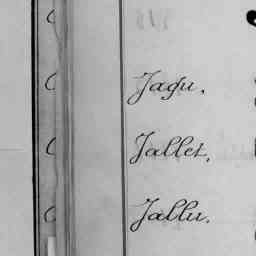 Jagu.
Jallet.
Jallu.